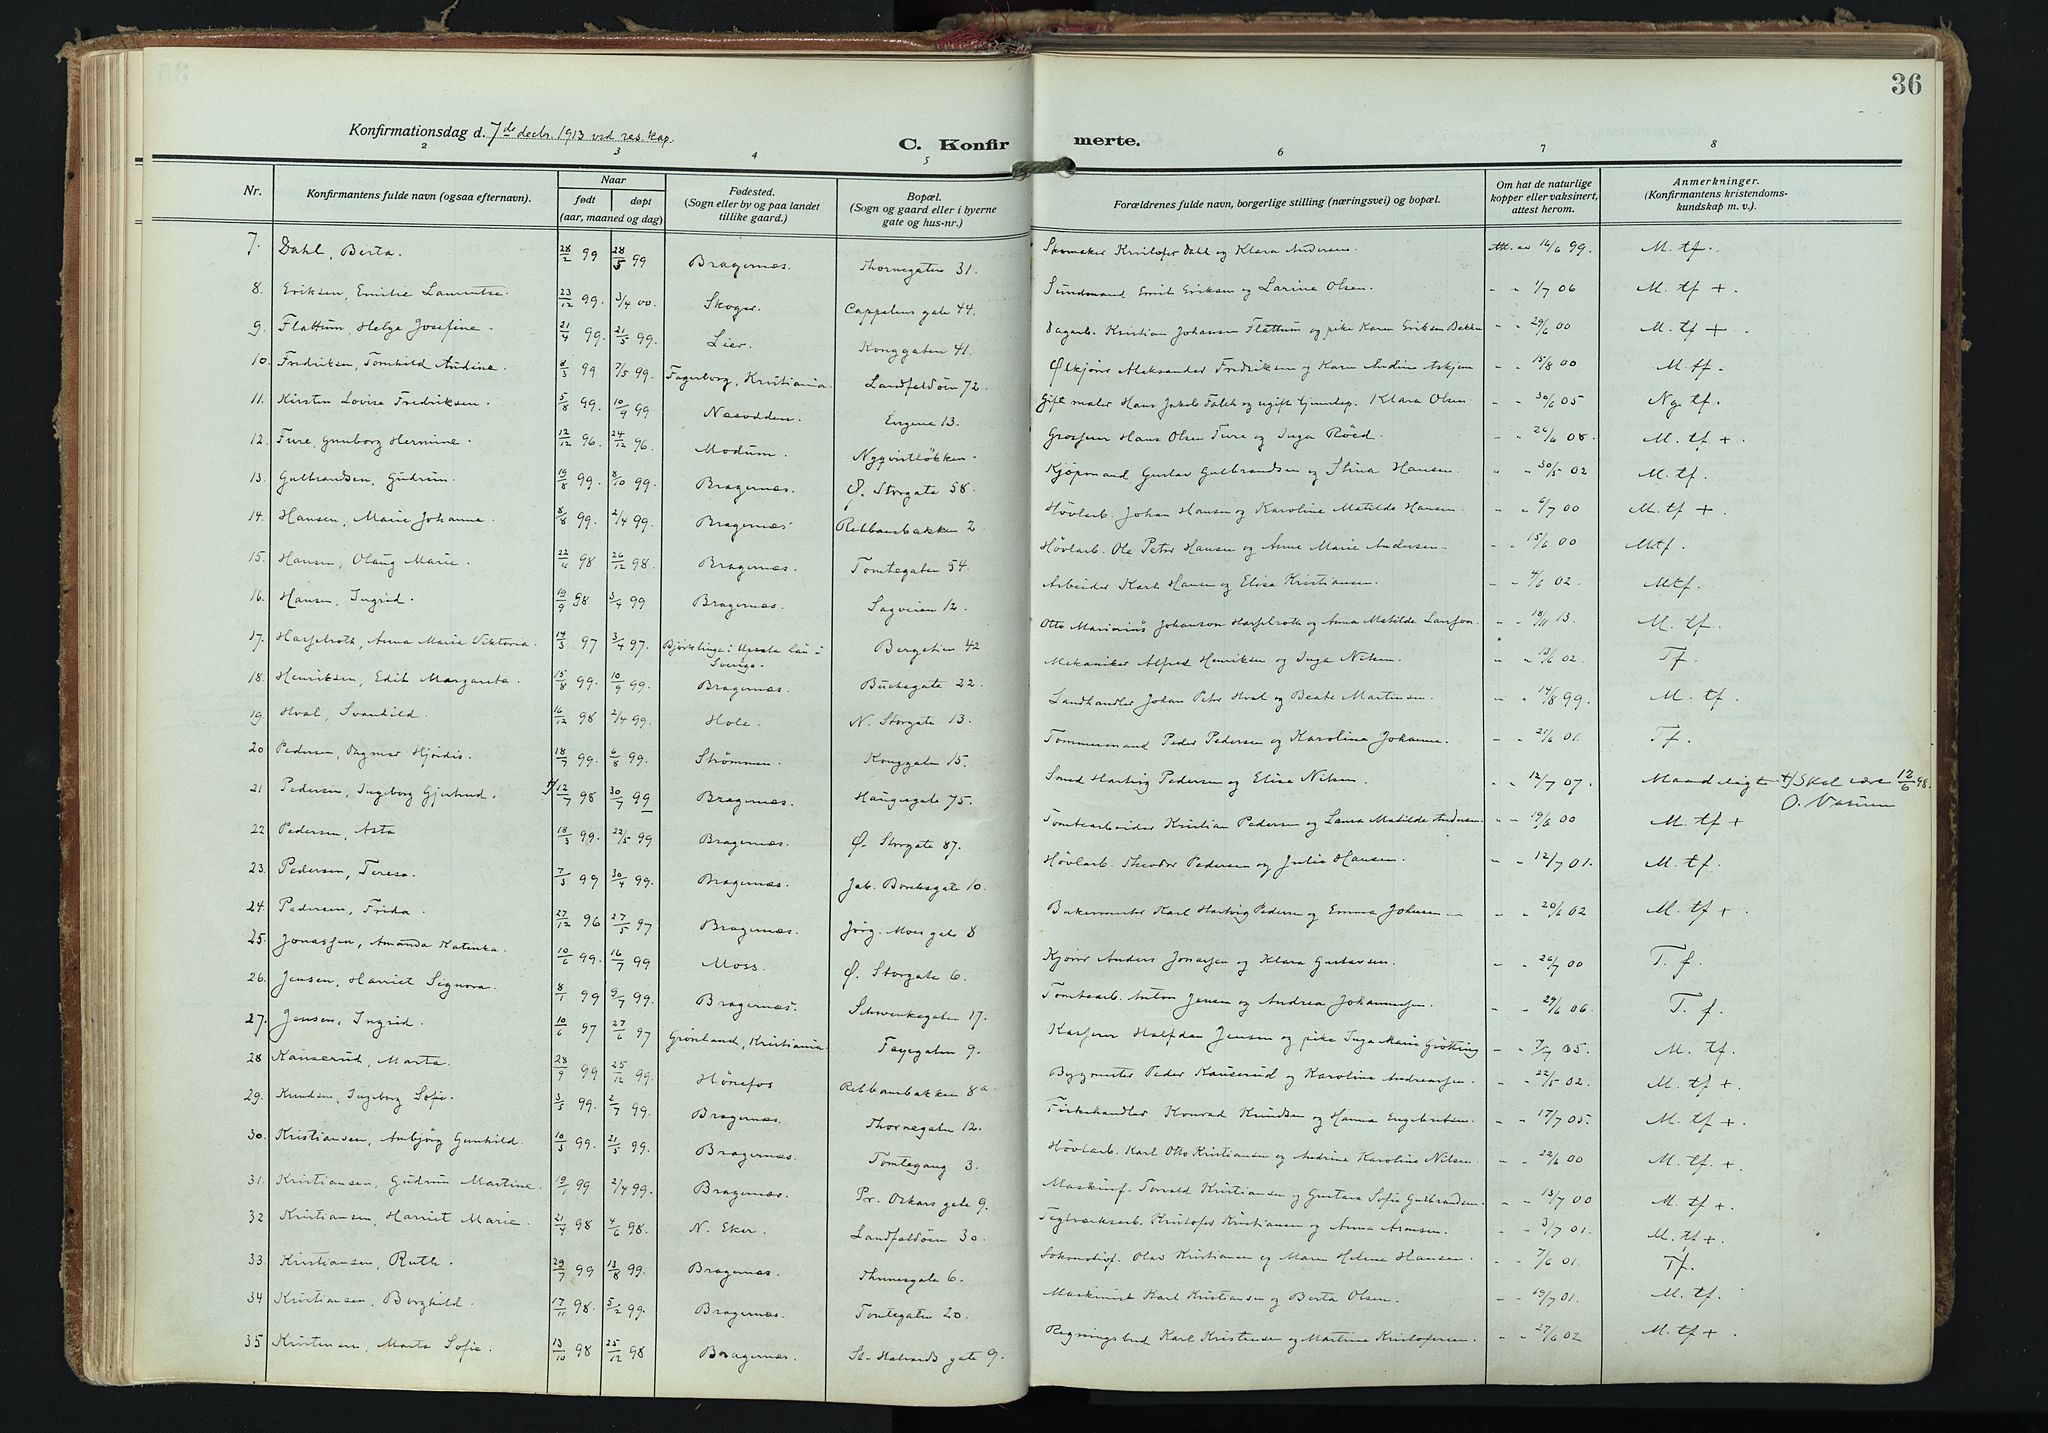 36
Konfirmationsdag d. 7de decbr. 1913 ved res. kap.
C. Konfirmerte.
2 3 4 5 6 7 8
Nr. Konfirmantens fulde navn (ogsaa efternavn). Naar født døpt (aar, maaned og dag) Fødested. (Sogn eller by og paa landet tillike gaard.) Bopæl. (Sogn og gaard eller i byerne gate og hus-nr.) Forældrenes fulde navn, borgerlige stilling (næringsvei) og bopæl. Om hat de naturlige kopper eller vaksinert, attest herom. Anmerkninger. (Konfirmantens kristendomskundskap m. v.)
7. Dahl, Berta. 28/2 99 28/5 99 Bragernæs. Thornegaten 31. Skomaker Kristofer Dahl og Klara Andersen. Att. av 16/6 99. M. tf.
8. Eriksen, Emilie Lauentse. 23/12 99. 3/4 00. Skoger. Cappelens gate 44. Sundmand Emil Eriksen og Larine Olsen. " " 1/7 06 M. tf +
9. Flattum, Helga Josefine. 21/4 99. 21/5 99. Lier. Konggaten 41. Dagarb. Kristian Johansen Flattum og pike Karen Eriksen Bakke " " 29/6 00 M. tf +
10. Fredriksen, Tomhild Andine. 8/3 99 7/5 99. Fagerborg, Kristiania. Landfaldøen 72. Ølkjører Aleksander Fredriksen og Karen Andine Askjem " " 15/8 00 M. tf.
11. Kirsten Lovise Fredriksen. 5/8 99. 10/9 99 Næsodden. Engene 13. Gift maler Hans Jakob Falch og ugift tjenestep. Klara Olsen. " " 30/6 05 Ng. tf.
12. Fure, Gunborg Hermine. 12/12 96. 24/12 96. Modum. Nyqvistløkken. Grosserer Hans Olsen Fure og Inga Røed. " " 26/6 08. M. tf +
13. Gulbrandsen, Gudrun. 19/8 99. 8/10 99. Bragernæs. Ø. Storgate 58. Kjøpmand Gustav Gulbrandsen og Stina Hansen. " " 30/5 02 M. tf.
14. Hansen, Marie Johanna. 8/8 99. 2/4 99. Bragernæs. Rebbansbakken 2. Høvlarb. Johan Hansen og Karoline Matilde Hansen. " " 6/7 00 M. tf +
15. Hansen, Olaug Marie. 22/11 98 26/12 98. Bragernæs. Tomtegaten 54. Høvlarb. Ole Peter Hansen og Anne Marie Andersen. " " 15/6 00 M. tf.
16. Hansen, Ingrid. 19/9 98 3/4 99 Bragernæs. Sagveien 12. Arbeider Karl Hansen og Elisa Kristiansen. " " 4/6 02. M. tf.
17. Hasselroth, Anna Maria Viktoria. 14/3 97 3/4 97. Bjørklinge i Upsala län i Sverige. Bergstien 42 Otto Marinius Johanson Hasselroth og Anna Matilde Larsson. " " 18/11 13. M. tf.
18. Henriksen, Edit Margareta. 15/8 99. 10/9 99. Bragernæs. Buchsgate 22. Mekaniker Alfred Henriksen og Inga Nilsen. " " 13/6 02. Tf.
19. Hval, Svanhild. 16/12 98 2/4 99. Hole. N. Storgate 13. Landhandler Johan Peter Hval og Beate Martinsen. " " 14/8 99. M. tf.
20. Pedersen, Dagmar Hjørdis. 18/7 99. 6/8 99. Strømmen. Konggaten 15. Tømmermand Peder Pedersen og Karolina Johanne. " " 21/6 01. Tf.
21. Pedersen, Ingeborg Gjertrud. +) 12/7 98 30/7 99 Bragernæs. Haugesgate 75. Smed Hartvig Pedersen og Elise Nilsen. " " 12/7 07. Maadeligt +) Skal være 12/6 98.
22. Pedersen, Asta 18/3 99. 22/5 99 Bragernæs. Ø. Storgate 87. Tomtearbeider Kristian Pedersen og Laura Matilde Andersen. " " 19/6 00 M. tf +
23. Pedersen, Teresa. 7/3 99 30/4 99. Bragernæs. Jab. Borchsgate 10. Høvlarb. Theodor Pedersen og Julie Hansen. " " 12/7 01. M. tf.
24. Pedersen, Frida. 27/12 96 27/5 97 Bragernæs. Jørg. Moes gate 8 Bakermester Karl Hartvig Pedersen og Emma Johansen " " 20/6 02 M. tf +.
25. Jonassen, Amanda Katinka. 10/6 99. 16/7 99 Moss. Ø. Storgate 6. Kjører Anders Jonassen og Klara Gustavsen. " " 26/7 00 T. f.
26. Jensen, Harriet Signora. 8/1 99 9/7 99. Bragernæs. Schwenkegaten 17. Tomtearb. Anton Jensen og Andrea Johannessen. " " 29/6 06. T. f.
27. Jensen, Ingrid. 10/6 97 27/6 97 Grønland, Kristiania. Fayegaten 9. Kasserer Halfdan Jensen og pike Inga Marie Grøtting " " 7/7 05. M. tf.
28. Kauserud, Marta. 28/9 99 25/12 99. Hønefos Rebbansbakken 8a Bygmester Peder Kauserud og Karoline Andreassen. " " 22/5 02. M. tf +
29. Knudsen, Ingeborg Sofie. 3/5 99. 2/7 99. Bragernæs. Thornegaten 12. Fiskehandler Konrad Knudsen og Hanna Engebretsen. " " 17/7 05. M. tf +.
30. Kristiansen, Anbjörg Gunhild. 10/3 99. 21/5 99. Bragernæs. Tomtegang 3. Høvlarb. Karl Otto Kristiansen og Andrine Karoline Nilsen. " " 22/6 00 M. tf. +
31. Kristiansen, Gudrun Martine. 19/1 99 2/4 99. Bragernæs. Pr. Oskars gate 9. Maskinf. Torvald Kristiansen og Gustava Sofie Gulbrandsen. " " 13/7 00 M. tf +.
32 Kristiansen, Harriet Marie. 21/4 98 4/6 98. N. Eker. Landfaldøen 30. Teglverksarb. Kristofer Kristiansen og Anna Arnesen. " " 3/7 01. M. tf +.
33. Kristiansen, Ruth. 29/7 99 13/8 99. Bragernæs. Thrinesgate 6. Lokomotivf. Olav Kristiansen og Maren Helene Hansen. " " 7/6 01. Tf.
34 Kristiansen, Borghild. 17/11 98. 5/2 99. Bragernæs. Tomtegaten 20. Maskinist Karl Kristiansen og Berta Olsen. " " 19/7 01. M. tf.
35 Kristensen, Marta Sofie. 13/10 98 25/12 98 Bragernæs. St. Halvards gate 9. Regningsbud Karl Kristensen og Martine Kristofersen. " " 27/6 02 M. tf +